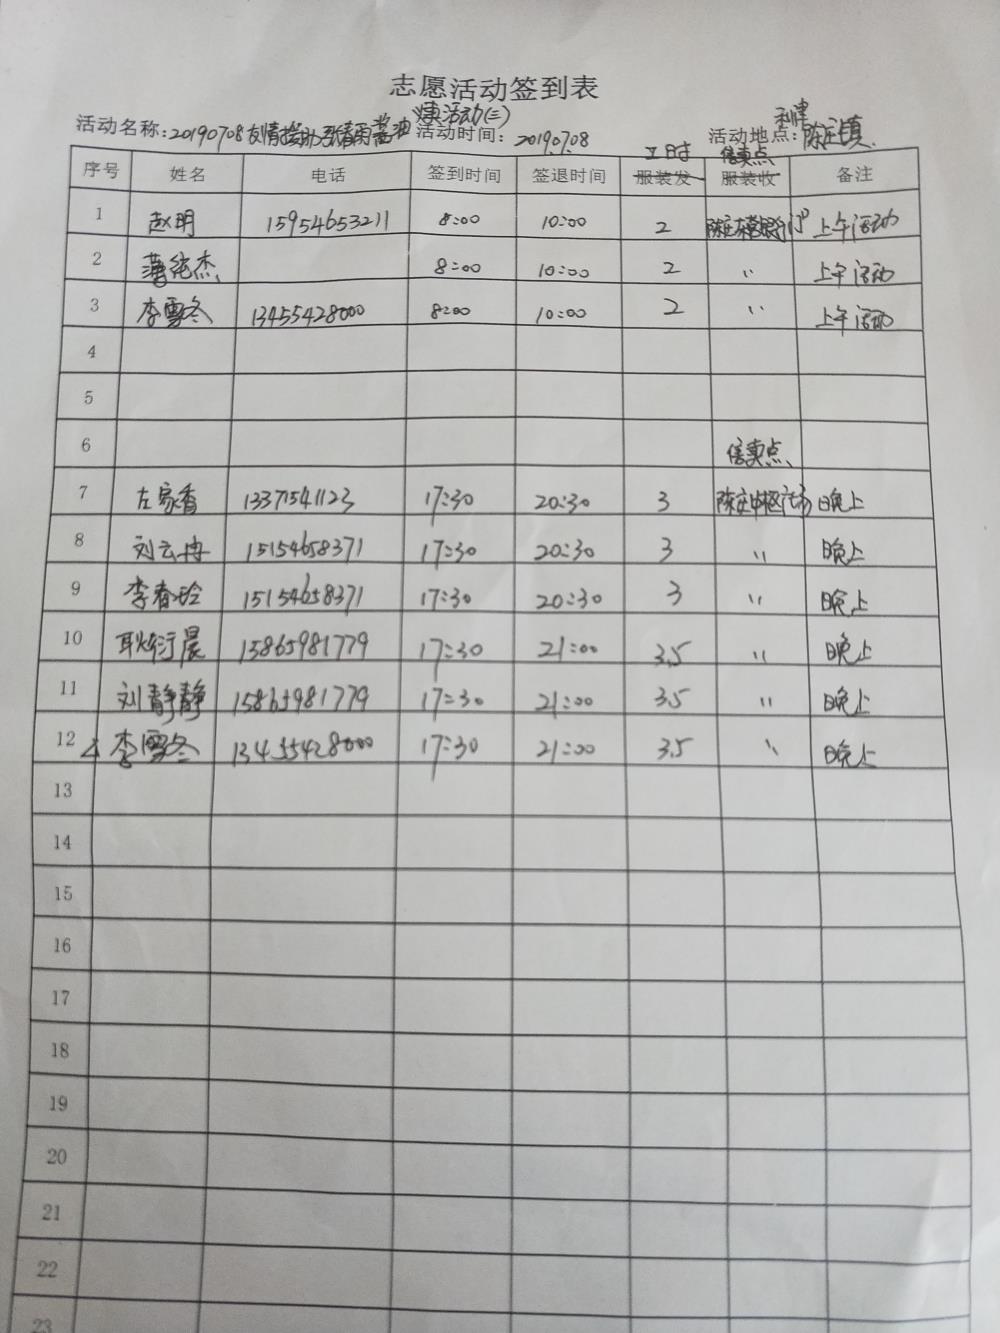 志愿活动签到表
活动名称:20190708友情援助 张倩雨酱油义卖活动(三) 活动时间:2019.07.08 活动地点:利津陈庄镇
序号 姓名 电话 签到时间 签退时间 工时 服装发 信卖点 服装收 备注
1 赵明 15954653211 8:00 10:00 2 上午活动
2 薄纯杰 8:00 10:00 2 〃 上午活动
3 李雪冬 13455428000 8:00 10:00 2 〃 上午活动
4
5
6 信卖点
7 左家香 13371541123 17:30 20:30 3 晚上
8 刘云冉 15154658371 17:30 20:30 3 〃 晚上
9 李春玲 15154658371 17:30 20:30 3 〃 晚上
10 耿衍晨 15865981779 17:30 21:00 3.5 〃 晚上
11 刘静静 15865981779 17:30 21:00 3.5 〃 晚上
12 李雪冬 13455428000 17:30 21:00 3.5 〃 晚上
13
14
15
16
17
18
19
20
21
22
23